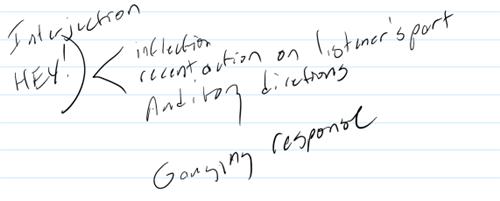 Interjection
HEY!
inflection
recent action on listener's part
Auditory directions
Gauging response